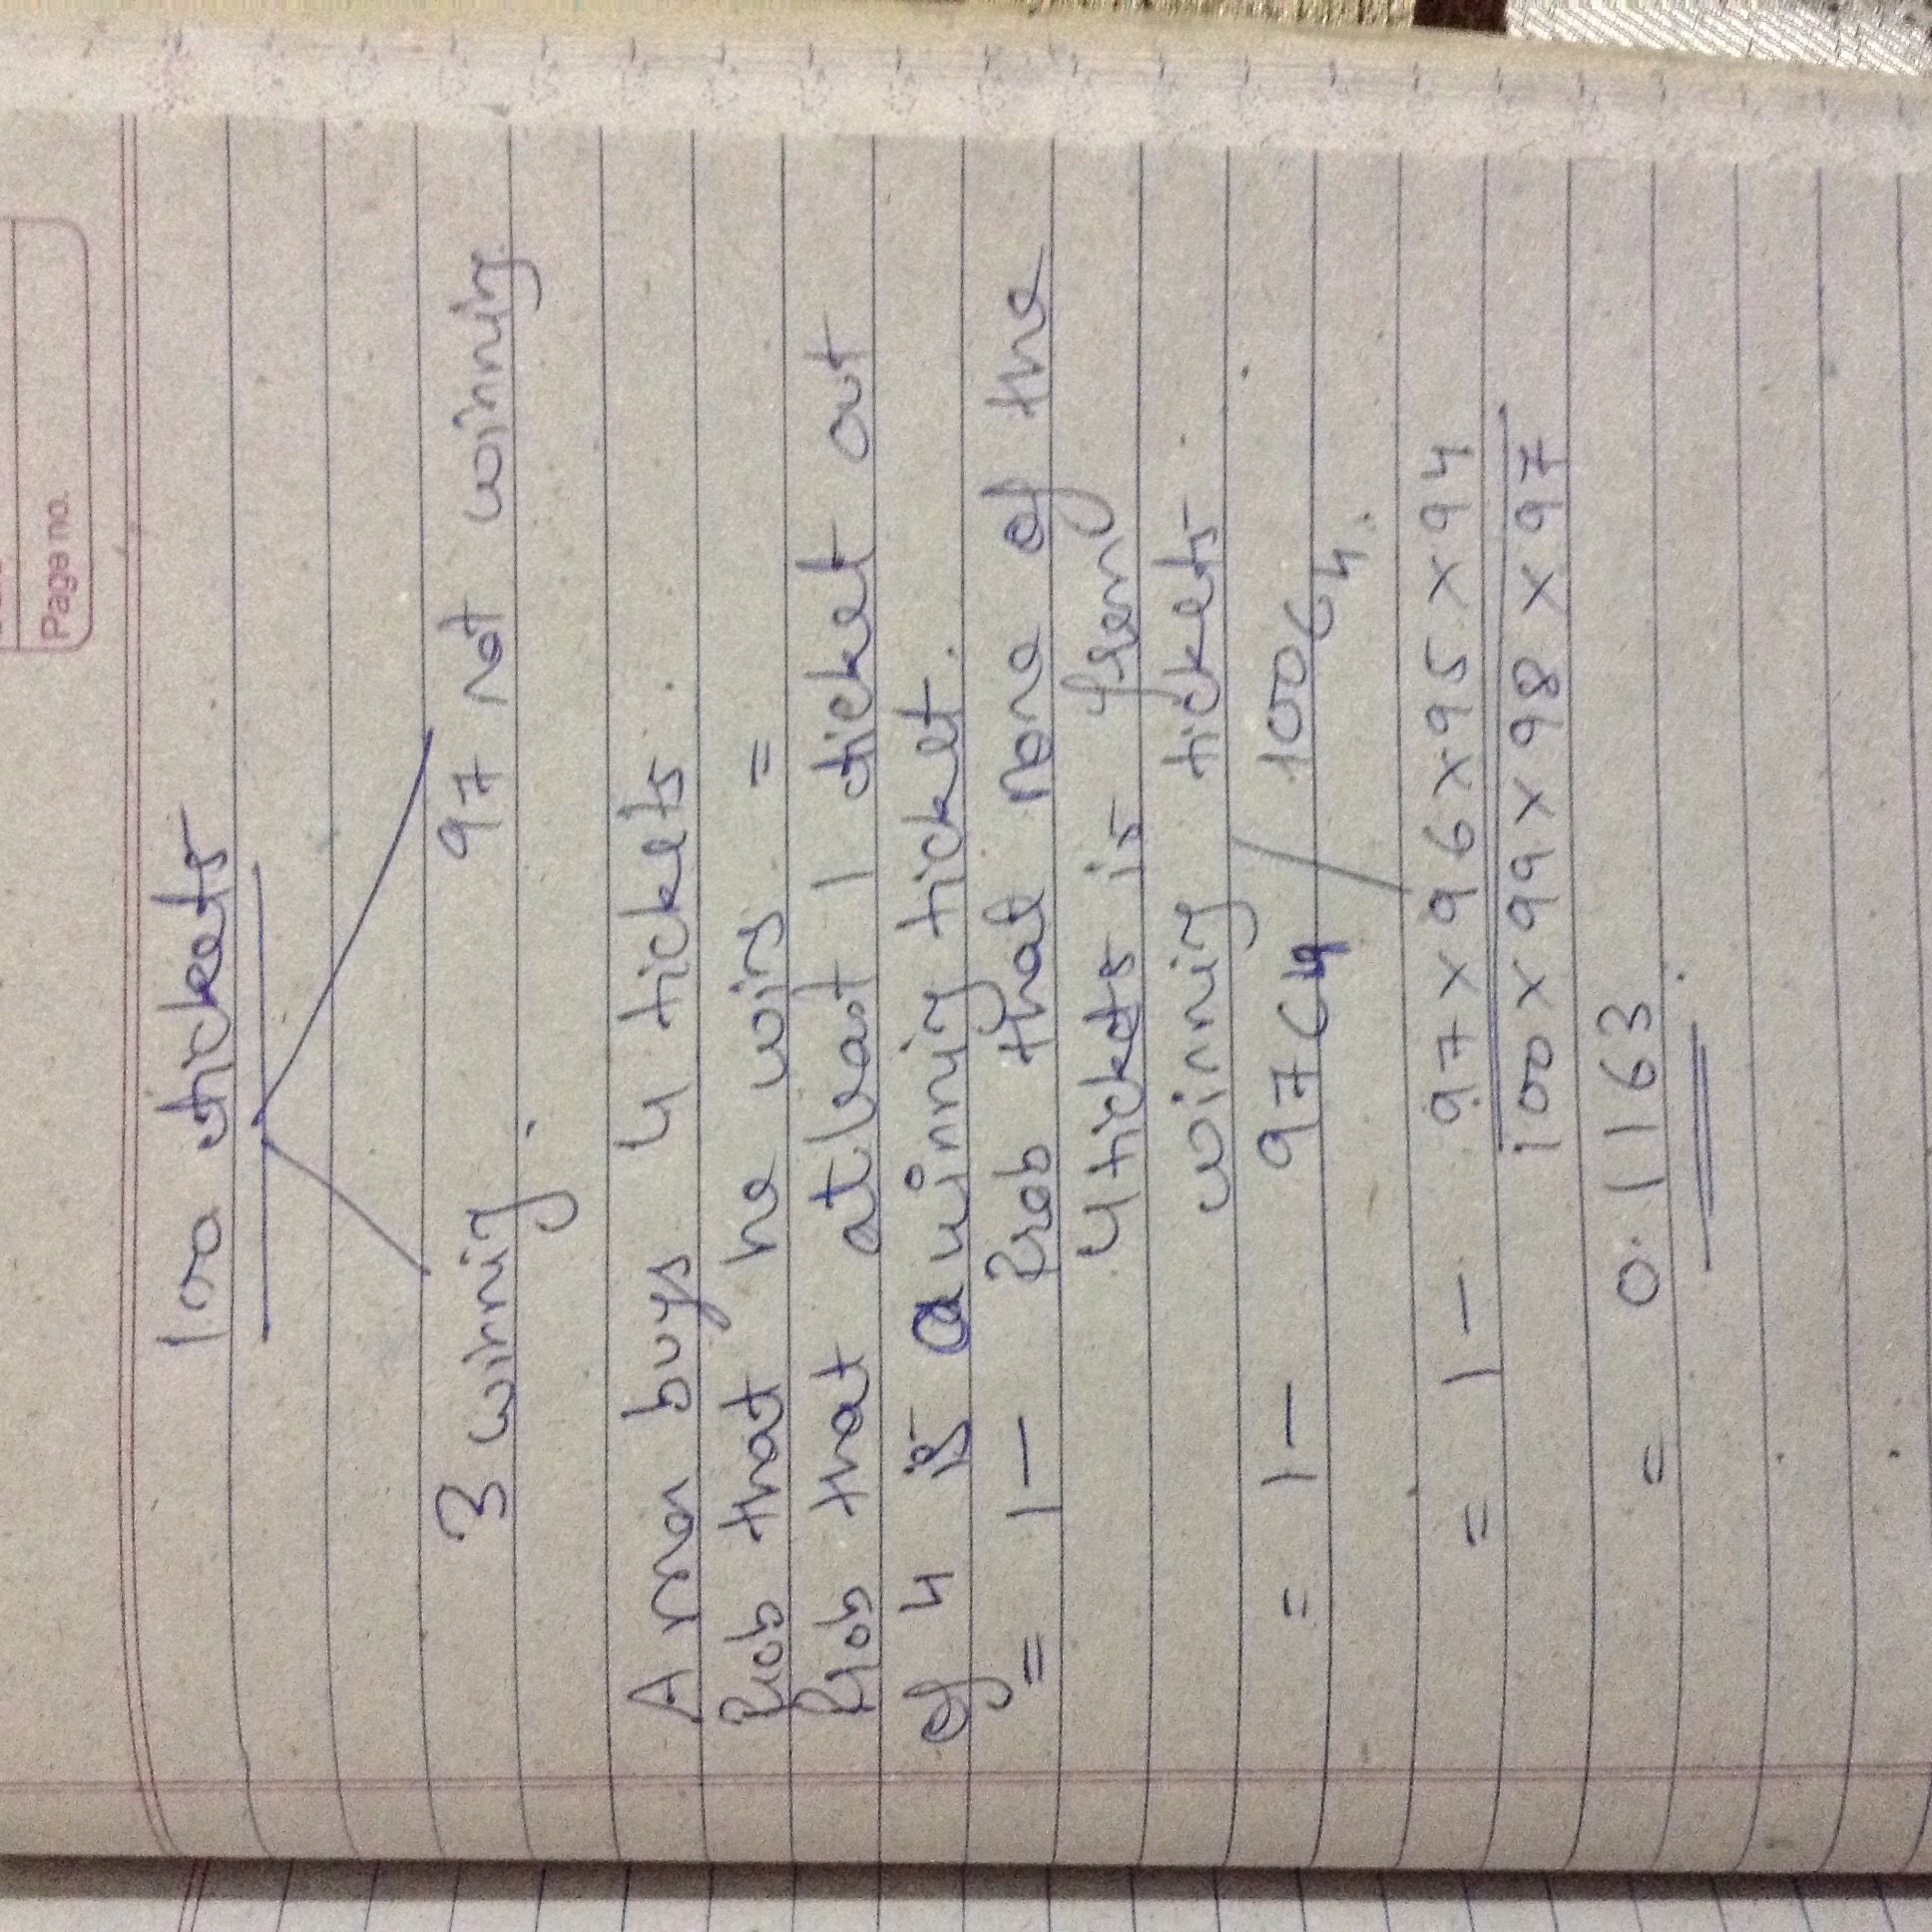 Page no.
100 tickets
3 winning 97 not winning.
A man buys 4 tickets
Prob that he wins =
Prob that atleast 1 ticket out
of 4 is a winning ticket.
= 1 - Prob that none of the
4 tickets is
winning tickets
= 1 - 97C4 / 100C4.
= 1 - 97 x 96 x 95 x 94
100 x 99 x 98 x 97
= 0.1163